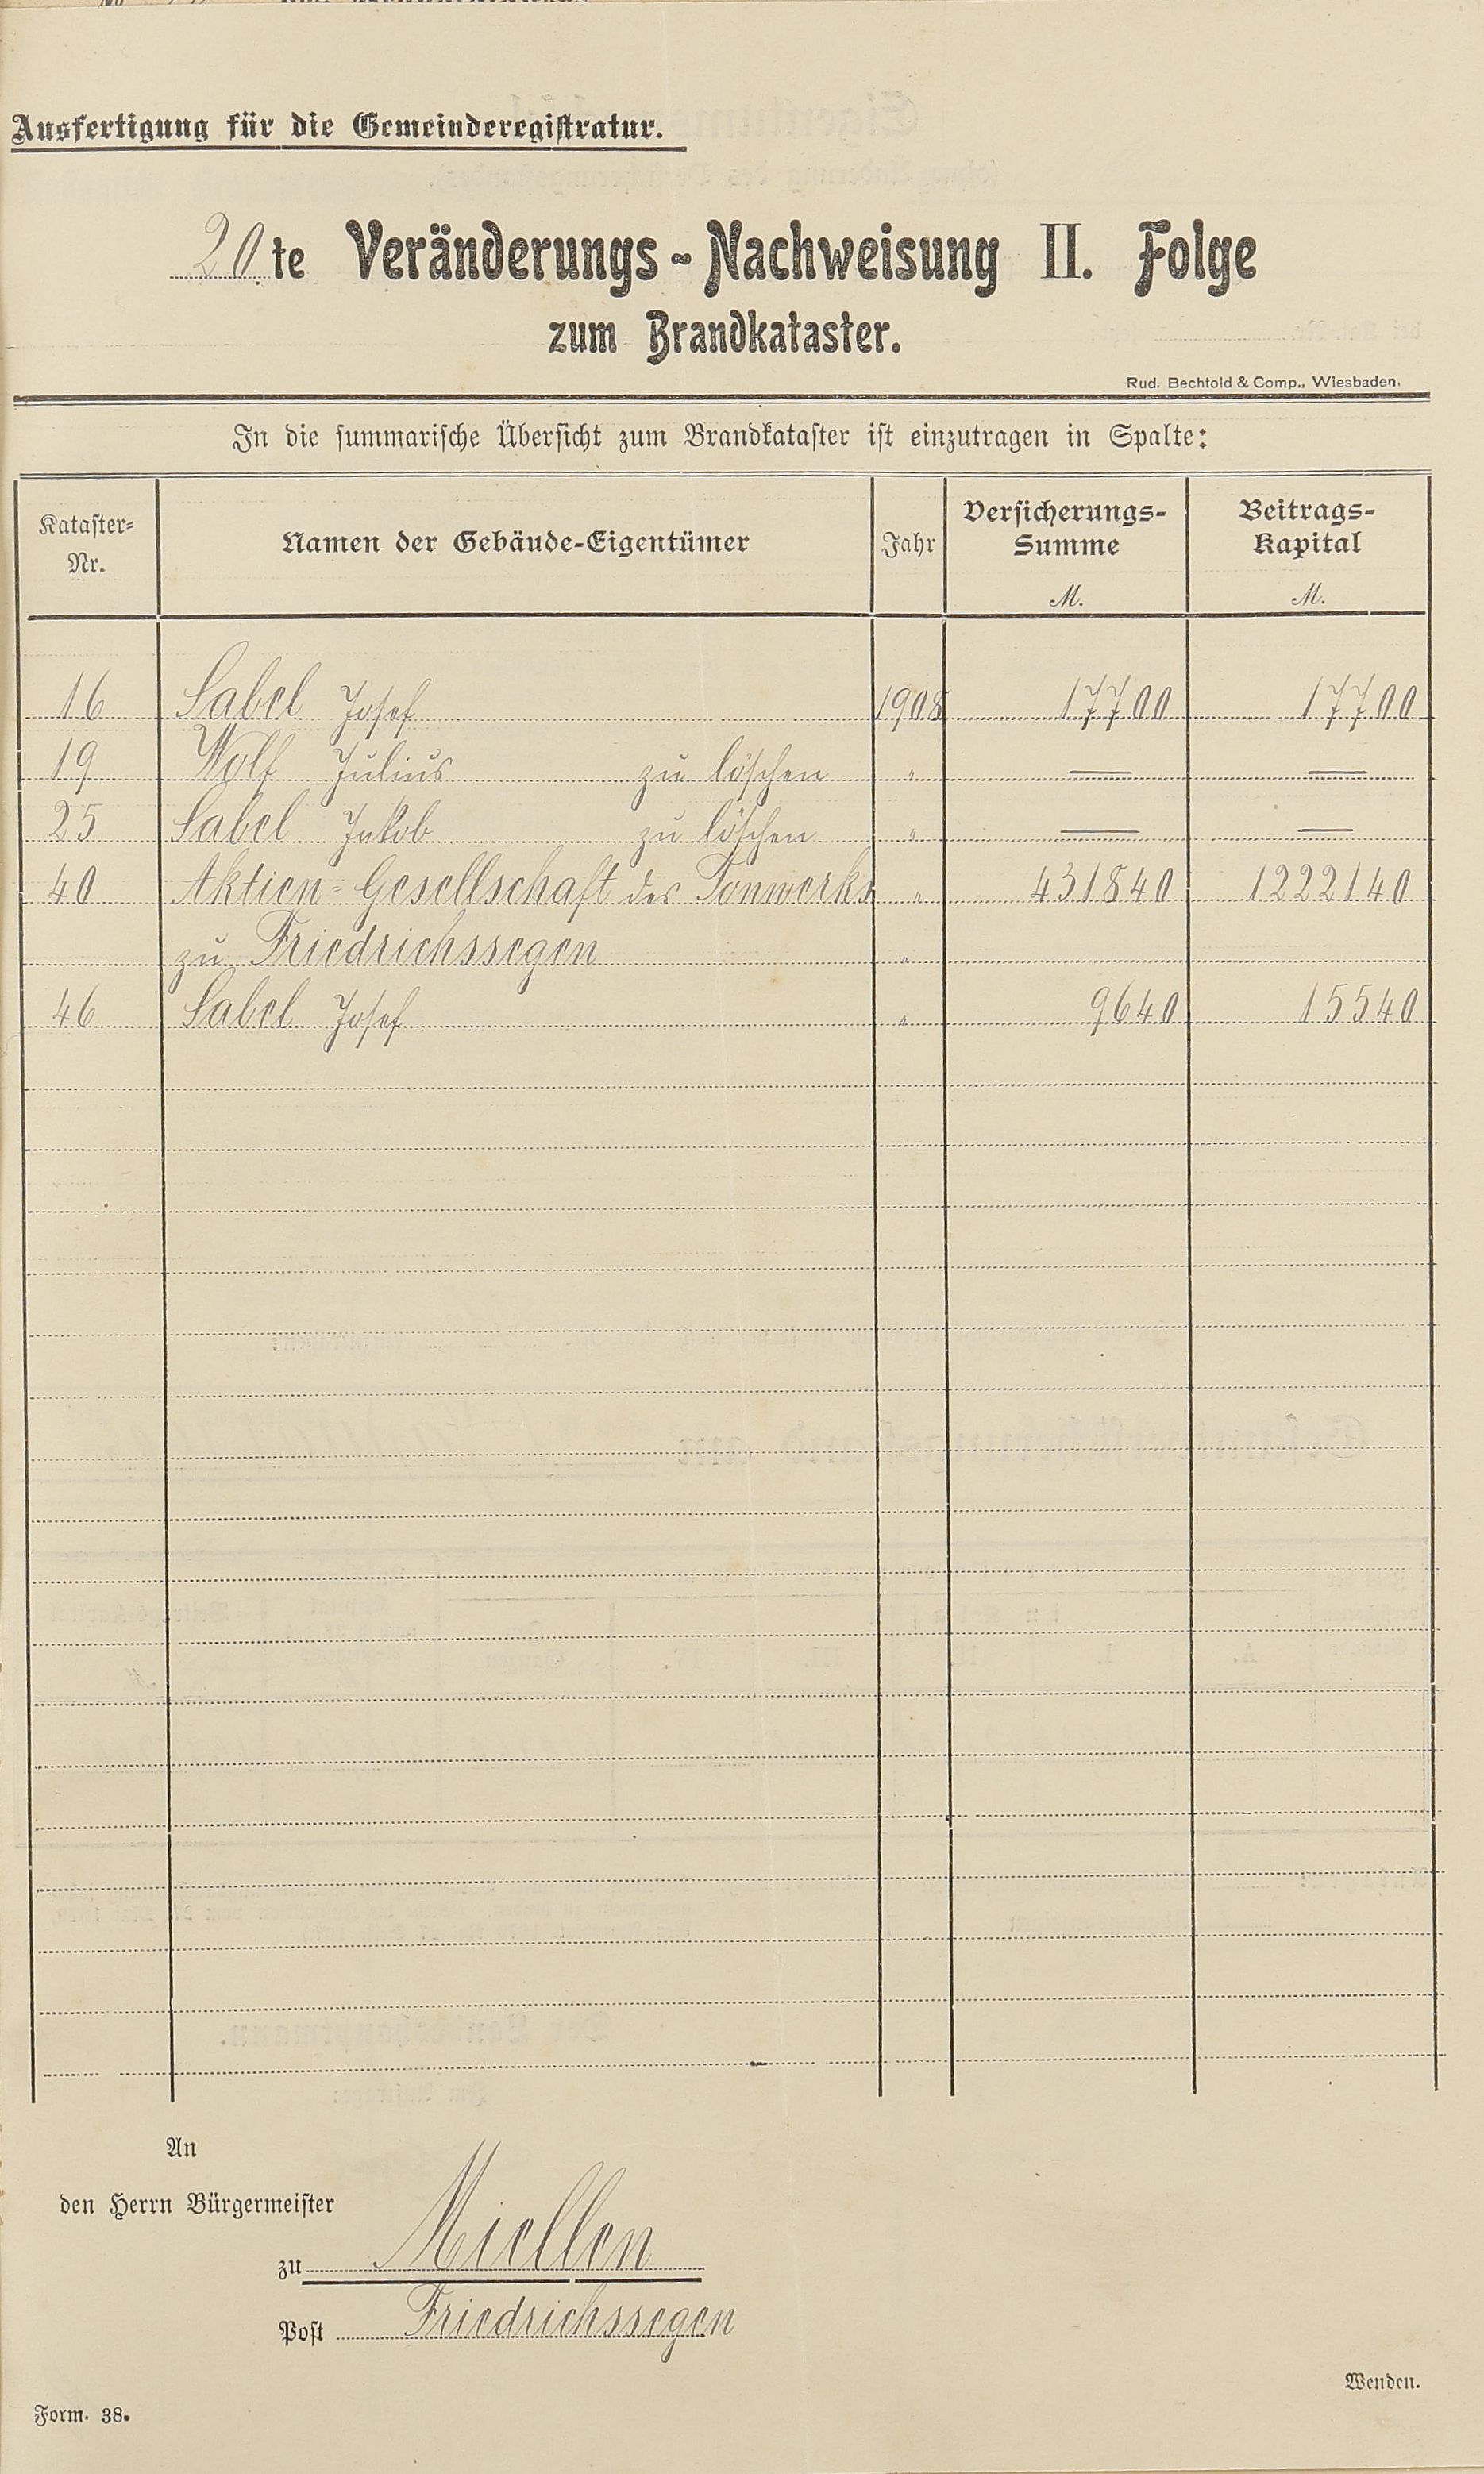 Ausfertigung für die Gemeinderegistratur.
20.te Veränderungs-Nachweisung II. Folge
zum Brandkataster.
Rud. Bechtold & Comp., Wiesbaden.
In die summarische Übersicht zum Brandkataster ist einzutragen in Spalte:
Kataster-Nr. Namen der Gebäude-Eigentümer Jahr Versicherungs-Summe M. Beitrags-Kapital M.
16 Sabel Josef 1908 17700 17700
19 Wolf Julius zu löschen " — —
25 Sabel Jakob zu löschen " — —
40 Aktien-Gesellschaft des Tonwerks " 431840 1222140
zu Friedrichssegen "
46 Sabel Josef " 9640 15540
An
den Herrn Bürgermeister
zu Miellen
Post Friedrichssegen
Wenden.
Form. 38.